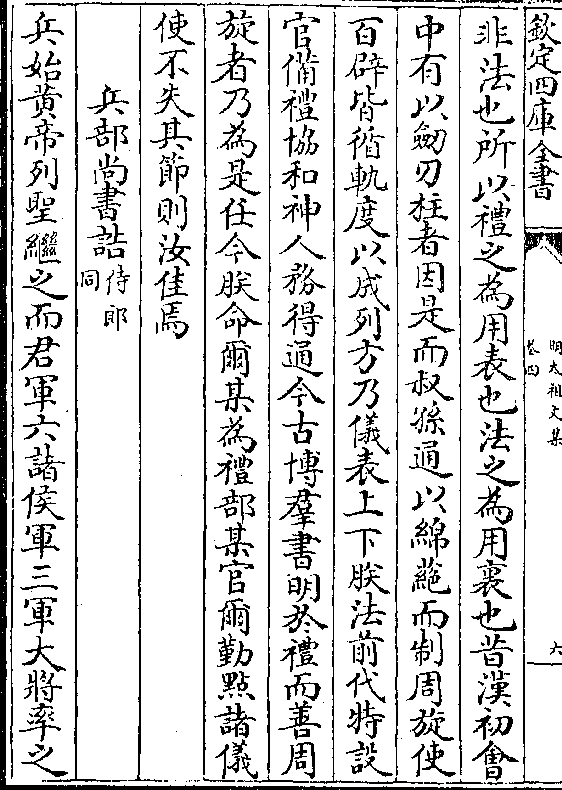 欽定四庫全書
明太祖文集
卷四
六
非法也所以禮之為用表也法之為用裏也昔漢初會
中有以劒刃柱者因是而叔孫通以綿蕝而制周旋使
百辟皆循軌度以成列方乃儀表上下朕法前代特設
官備禮協和神人務得通今古博羣書明於禮而善周
旋者乃為是任今朕命爾某為禮部某官爾勤點諸儀
使不失其節則汝佳焉
兵部尚書誥侍郎同
兵始黄帝列聖繼之而君軍六諸侯軍三軍大將率之